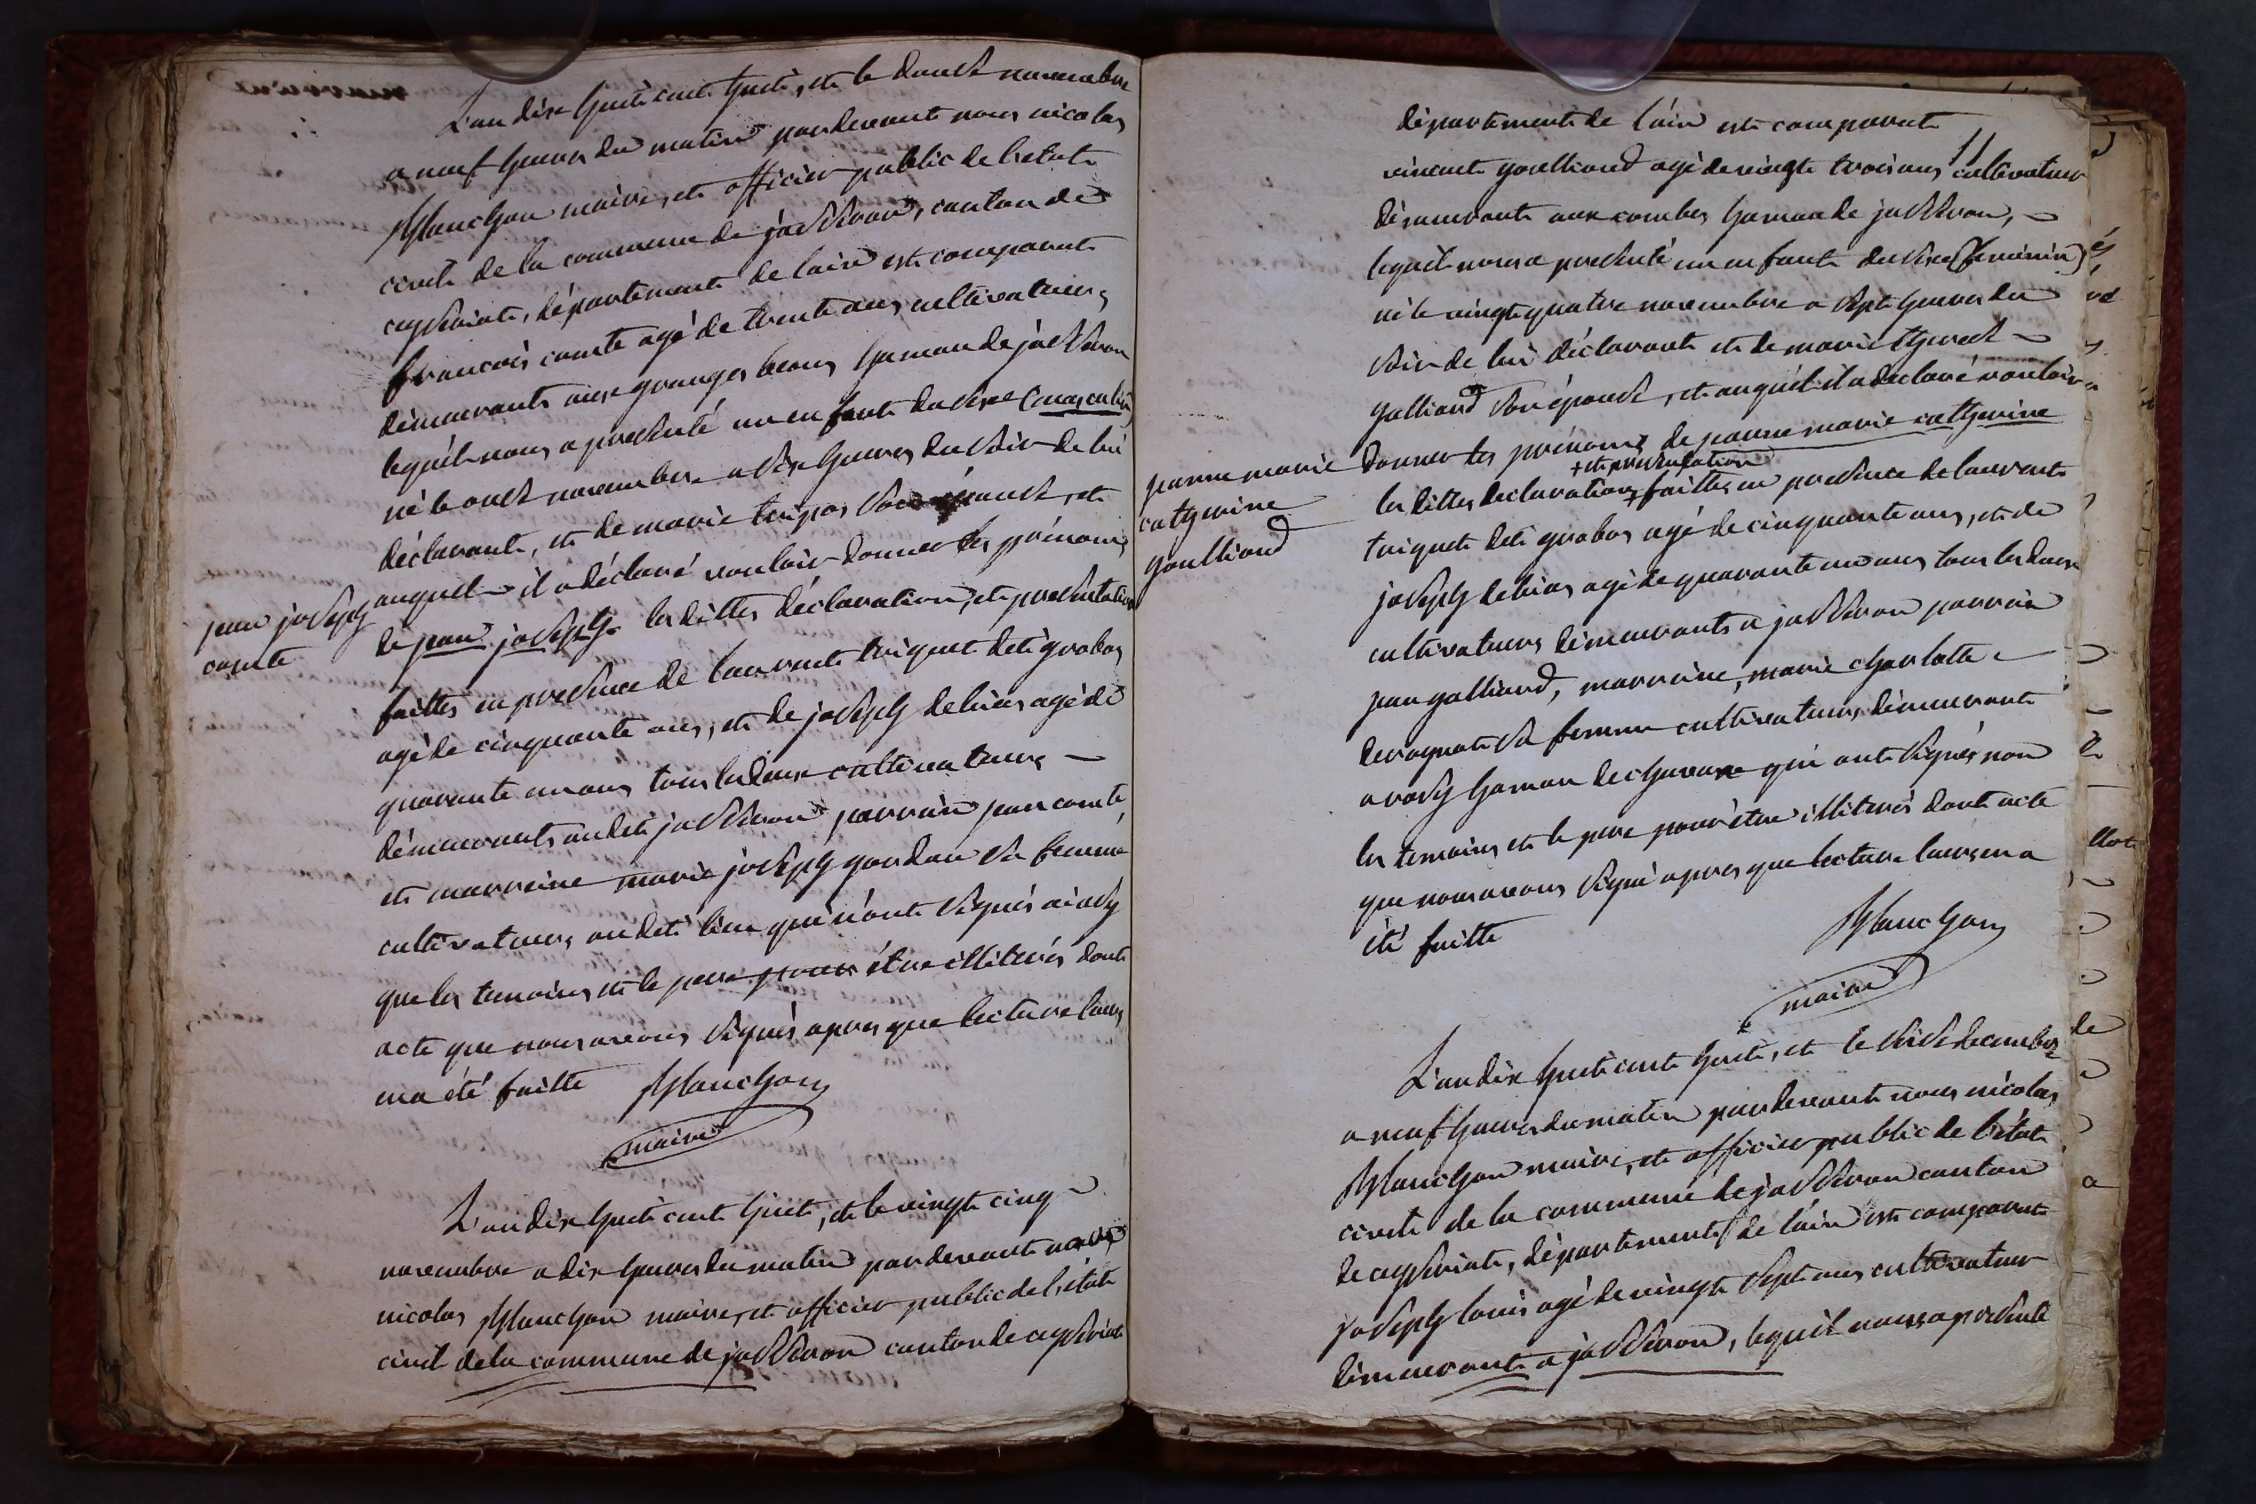 L'an dixe huit cent huit, et le douse novembre
a neuf heures du matin pardevant nous nicolas
Manchon maire, et officier public de l'etat
civil de la commune de jasseron, canton de
ceyseriat, département de l'ain est comparut
françois comte agé de trente ans, cultivateur,
démeurant aux granges beons hamau de jasseron
lequél nous a presenté un enfant du sexe (masculin)
né le onse novembre a sixe heures du soir de lui
déclarant, et de marie son épouse, et
auquel il a déclaré vouloir donner les prénoms
jean joseph
comte
de jean joseph les dittes déclaration, et presentation
faittes en presence de laurent triquet dit grabas
agé de cinquante ans, et de joseph debias agé de
quarante un ans tous les deux cultivateurs
démeurants au dit jasseron parrain jean comte,
et marreine marie joseph gandan sa femme
cultivateurs au dit lieu qui n'ont signés ainsy
que les temoins et le pere pour étre illiterés dont
acte que nous avons signés apres que lecture leurs
en a été faitte Manchon
maire
L'an dixe huit cent huit, et le vingt cinq
novembre a dix heures du matin pardevant nous
nicolas Manchon maire, et officier public de l'état
civil de la commune de jasseron canton de ceyseriat
département de l'ain est comparut
vincent goulliand agé de vingt trois ans cultivateur
démeurant aux combes hamau de jasseron,
lequél nous a presenté un enfant du sexe (feminin)
né le vingt quatre novembre a sept heures du
soir de lui déclarant et de marie therese
galliand son épouse, et auquél il a declaré vouloir
jeanne marie
catherine
goulliand
donner les prénoms de jeanne marie catherine
+ et presentation
les dittes declaration + faittes en presence de laurent
triquet dit grabas agé de cinquante ans, et de
joseph debias agé de quarante un ans tous les deux
cultivateurs démeurants a jasseron parrain
jean galliand, marreine, marie charlotte
sa femme cultivateurs démeurant
a rosy hamau de qui ont signés non
les temoins et le pere pour étre illiterés dont acte
que nous avons signé apres que lecture leurs en a
été faitte Manchon
maire
L'an dix huit cent huit, et le seise decembre
a neuf heures du matin pardevant nous nicolas
Manchon maire, et officier public de l'état
civil de la commune de jasseron canton
de ceyseriat, département de l'ain est comparut
joseph louis agé de vingt sept ans cultivateur
démeurant a jasseron, lequél nous a presenté